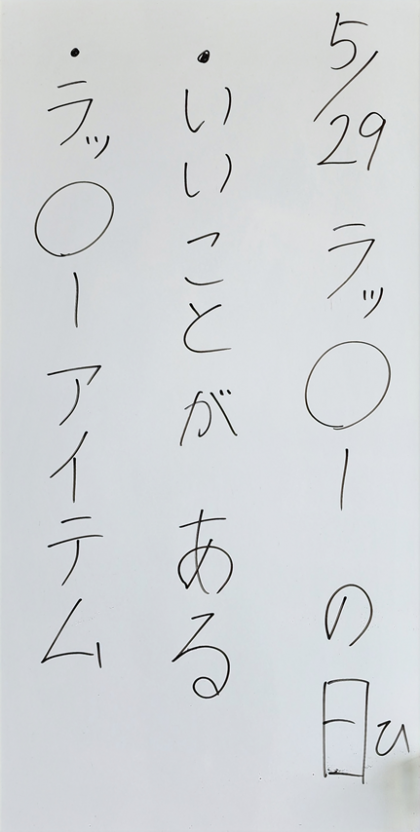 5/29 ラッ〇ーの日ひ
・いいことがある
・ラッ〇ーアイテム